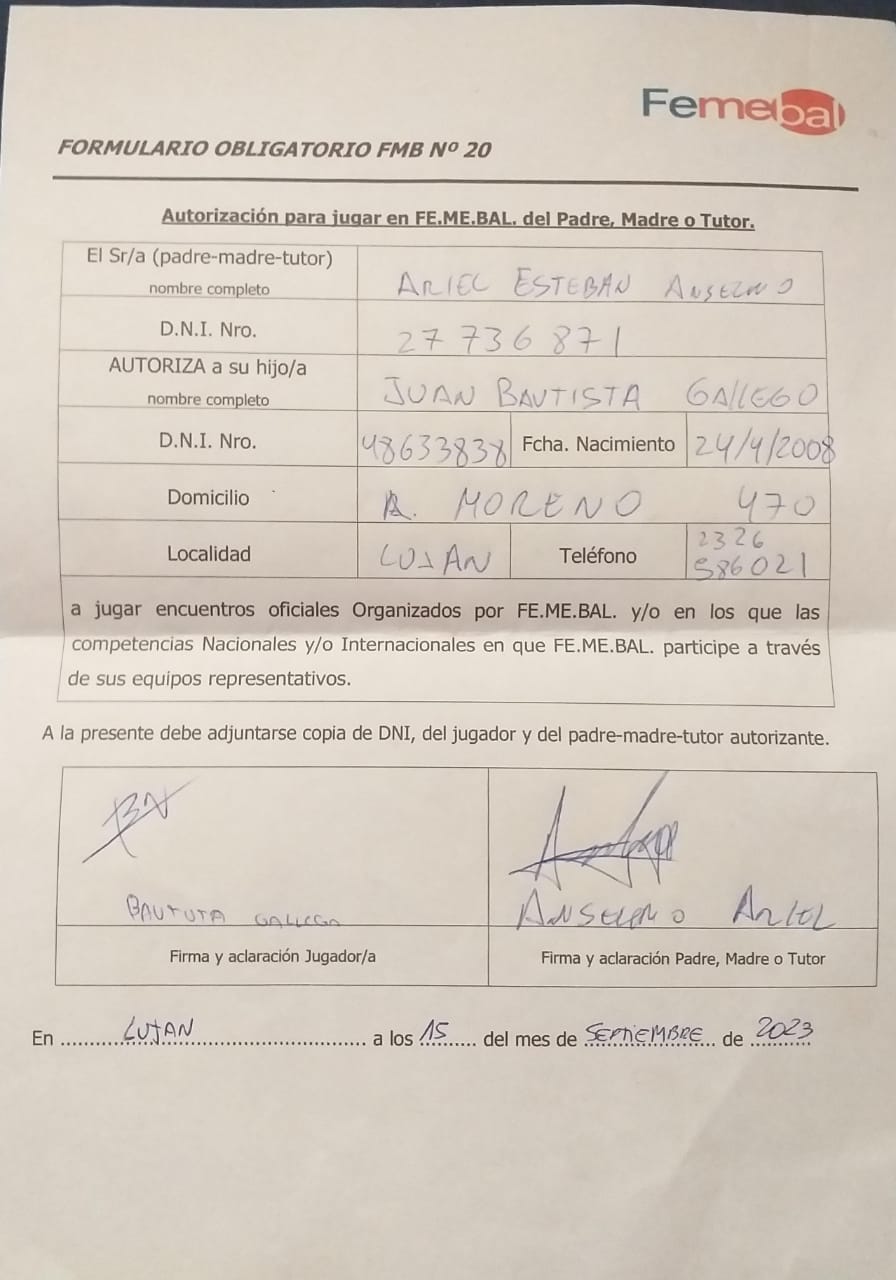 Femebal
FORMULARIO OBLIGATORIO FMB Nº 20
Autorización para jugar en FE.ME.BAL. del Padre, Madre o Tutor.
El Sr/a (padre-madre-tutor)
nombre completo
ARIEL ESTEBAN ANSELMO
D.N.I. Nro.
27 736 871
AUTORIZA a su hijo/a
nombre completo
JUAN BAUTISTA GALLEGO
D.N.I. Nro.
48633838
Fcha. Nacimiento
24/4/2008
Domicilio
MORENO 470
Localidad
LUJAN
Teléfono
2326
586021
a jugar encuentros oficiales Organizados por FE.ME.BAL. y/o en los que las
competencias Nacionales y/o Internacionales en que FE.ME.BAL. participe a través
de sus equipos representativos.
A la presente debe adjuntarse copia de DNI, del jugador y del padre-madre-tutor autorizante.
GALLEGO
ANSELMO ARIEL
Firma y aclaración Jugador/a
Firma y aclaración Padre, Madre o Tutor
En LUJAN a los 15 del mes de SEPTIEMBRE de 2023